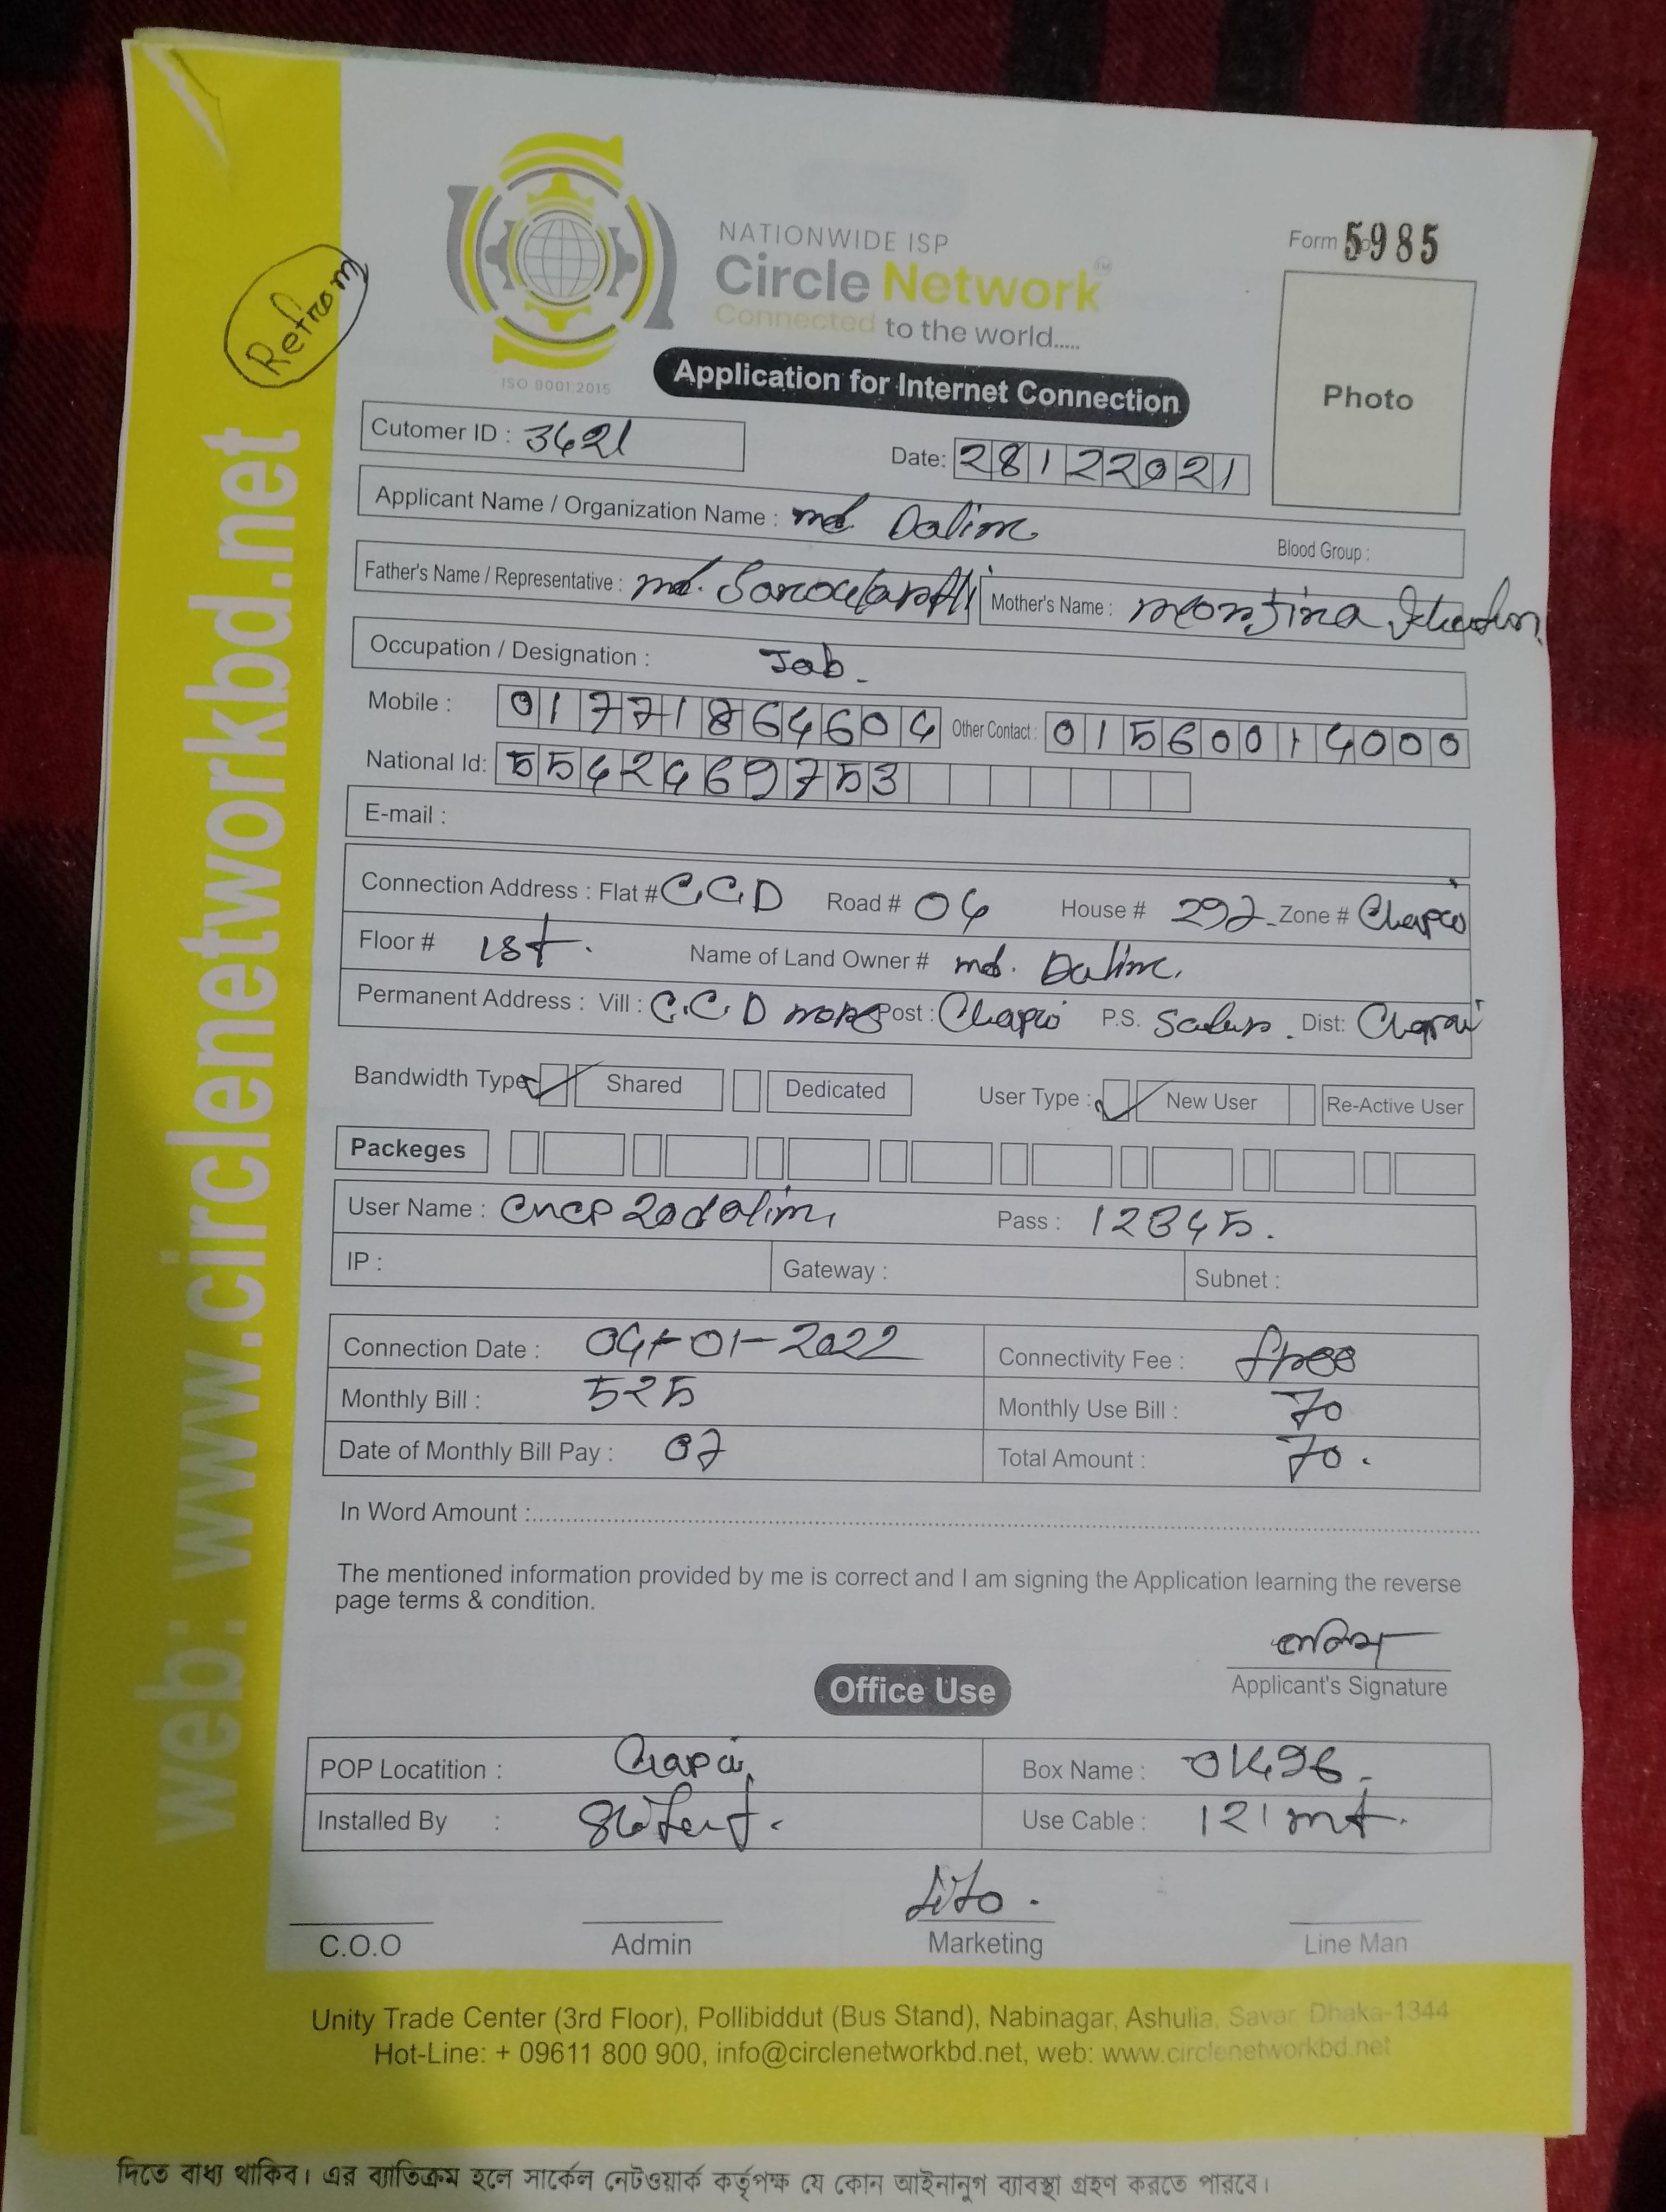 Refrom
NATIONWIDE ISP
Circle Network
Connected to the world.....
ISO 9001:2015
Form 5985
Photo
Application for Internet Connection
Cutomer ID : 3421
Date: 28122021
Applicant Name / Organization Name : md. Dalim
Blood Group :
Father's Name / Representative : md. Mother's Name :
Occupation / Designation : Job.
Mobile : 01771864604 Other Contact : 01560014000
National Id: 5542469753
E-mail :
Connection Address : Flat # C.C.D Road # 04 House # 292 Zone # Chapai
Floor # 1st. Name of Land Owner # md. Dalim.
Permanent Address : Vill : C.C.D Post : Chapai P.S. Sadar. Dist: Chapai
Bandwidth Type Shared Dedicated User Type : New User Re-Active User
Packeges
User Name : cncp20dalim Pass : 12345.
IP : Gateway : Subnet :
Connection Date : 04-01-2022 Connectivity Fee : free
Monthly Bill : 525 Monthly Use Bill : 70
Date of Monthly Bill Pay : 07 Total Amount : 70.
In Word Amount :
The mentioned information provided by me is correct and I am signing the Application learning the reverse
page terms & condition.
Applicant's Signature
Office Use
POP Locatition : Chapai Box Name :
Installed By : Use Cable : 121 mt.
C.O.O Admin Marketing Line Man
Unity Trade Center (3rd Floor), Pollibiddut (Bus Stand), Nabinagar, Ashulia, Savar, Dhaka-1344
Hot-Line: + 09611 800 900, info@circlenetworkbd.net, web: www.circlenetworkbd.net
web: www.circlenetworkbd.net
দিতে বাধ্য থাকিব। এর ব্যাতিক্রম হলে সার্কেল নেটওয়ার্ক কর্তৃপক্ষ যে কোন আইনানুগ ব্যাবস্থা গ্রহণ করতে পারবে।